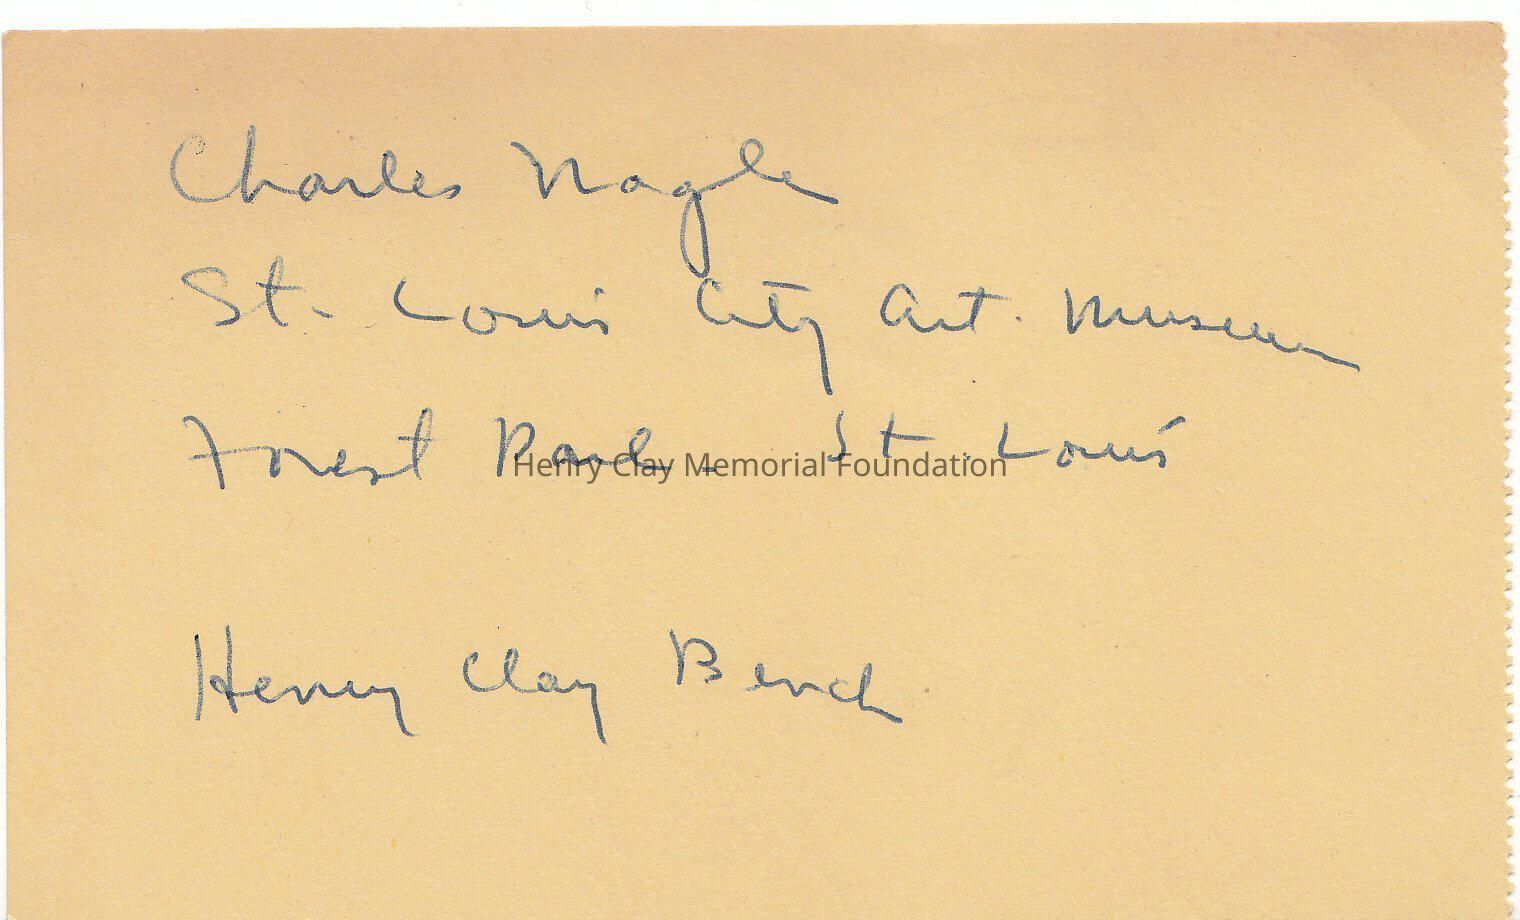 Charles Nagle
St. Louis City Art. Museum
Forest Park - St Louis
Henry Clay Memorial Foundation
Henry Clay Bench